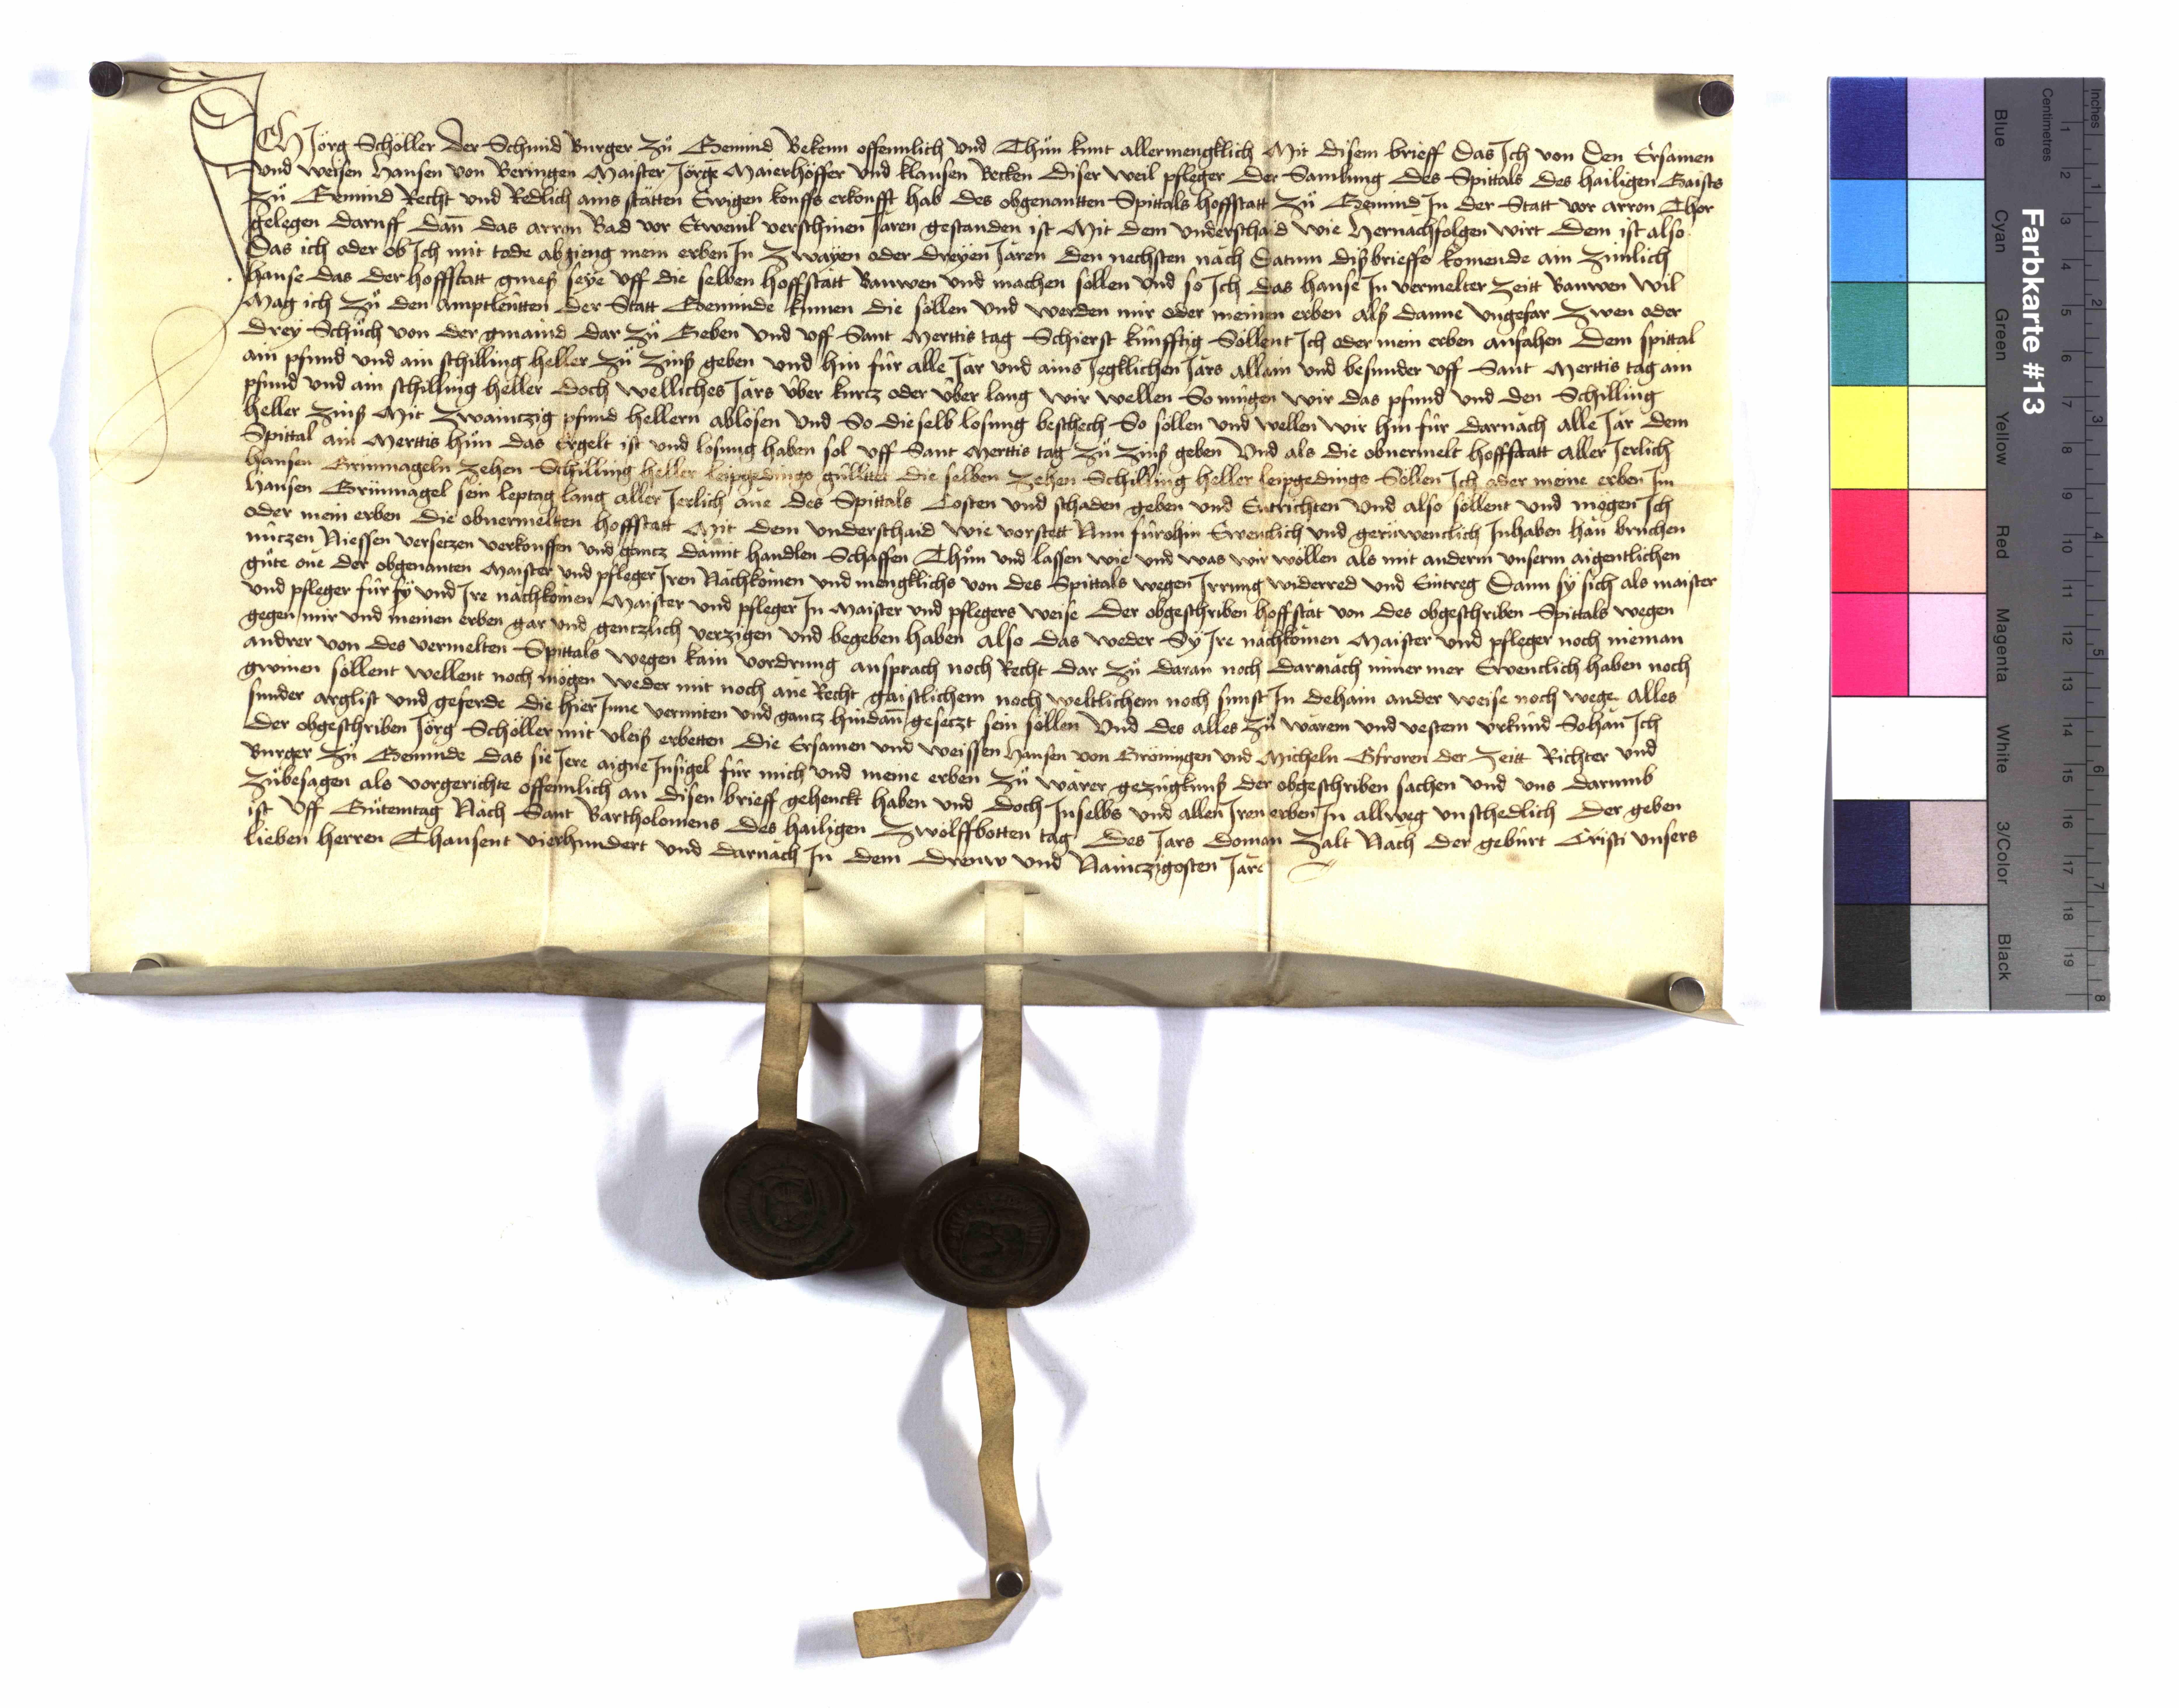 ICH Jörg Schöller Der Schmid Burger Zů Gemind Bekenn offennlich und Thůn kunt allermengklich Mit disem brieff Das Ich von Den Ersamen
und weysen Hansen von Beringen Maister Jörge Maierhöffer und klausen Becken diser weil pfleger Der Samlung Des Spittals Des hailigen Gaists
Zů Gemind Recht und Redlich ains stätten Ewigen kouffs erkoufft hab Des obgenantten Spittals hoffstatt Zů Gemind In Der Statt vor arron Thor
gelegen Daruff Dan̄ Das arron Bad vor Etweuil verschinen Jaren gestanden ist Mit Dem underschaid wie Hernachfolgen wirt Dem ist also
Das ich oder ob Ich mit tode abgieng mein erben In Zwayen oder Dreyen Jären Den nechsten näch Datum diß brieffs komende ain Zimlich
hause Das Der hoffstatt gmeß seye uff die selben hoffstatt Bauwen und machen söllen und so Ich Das hause In vermelter Zeitt Bauwen wil
Mag ich Zů Den amptleutten Der Statt Geminde kumen die söllen und werden mir oder meinen erben alß Danne Ungefar Zwen oder
Drey Schůch von Der gmaind Dar Zů Geben und uff Sant Merttis tag Schierst künfftig Söllent Ich oder mein erben anfahen Dem spittal
ain pfund und ain schilling heller Zů Zinß geben und hin für alle Jar und ains Jegklichen Järs allain und besunder uff Sant Merttis tag ain
pfund und ain schilling heller Doch welliches Järs Über kurtz oder Über lang wir wellen So mügen wir Das pfund und den Schilling
heller Zinß Mit Zwaintzig pfund hellern ablösen Und So die selb losung beschech So söllen und wellen wir hin für Darnäch alle Jär Dem
Spittal ain Merttis hůn Das Ergelt ist und losung haben sol uff Sant Merttis tag Zů Zinß geben Und als die obvermelt hoffstatt aller Jerlich
Hansen Grünnageln Zehen Schilling heller leipgedings gülttet die selben Zehen Schilling heller leipgedings Söllen Ich oder meine erben Im
Hansen Grünnagel sein leptag lang aller Jerlich äne Des Spittals Costen und schaden geben und Entrichten Und also söllent und mögen Ich
oder mein erben die obvermelten hoffstatt Mit Dem underschaid wie vorstett Nun fürohin Ewenclich und gerüwenclich Inhaben hän bruchen
nützen Niessen versetzen verkouffen und gantz Dämit handlen Schaffen Thůn und lassen wie und was wir wöllen als mit anderm unserm aigentlichen
gůte one Der obgenanten Maister und pfleger Iren Nächkomen und mengklichs von Des Spittals wegen Irrung widerred und Eintreg Dann sy sich als maister
und pfleger für sy und Ire nächkomen Maister und pfleger In Maister und pflegers weise Der obgeschriben hoffstat von Des obgeschriben Spittals wegen
gegen mir und meinen erben gar und gentzlich verzigen und begeben haben Also Das weder Sy Ire nächkomen Maister und pfleger noch nieman
andrer von des vermelten Spittals wegen kain vordrung ansprach noch Recht Dar Zů Daran noch Darnäch nimer mer Ewenclich haben noch
gwinen söllent wellent noch mögen weder mit noch äne Recht gaistlichem noch weltlichem noch sunst In Dehain ander weise noch wege Alles
sunder arglist und geferde die hier Inne vermiten und gantz hindan gesetzt sein söllen Und Des alles Zů wärem und vestem urkünd So hän Ich
Der obgeschriben Jörg Schöller mit vleiß erbetten Die Ersamen und weissen Hansen von Gröningen und Micheln Gfroren Der Zeitt Richter und
Burger Zů Geminde Das sie Iere aigne Insigel für mich und meine erben Zů wärer gezügknuß Der obgeschriben sachen und uns Darumb
Zůbesagen als vorgerichte offennlich an disen brieff gehenckt haben und Doch Inselbs und allen Iren erben In allweg unschedlich Der geben
ist Uff Gůtemtag Näch Sant Bartholomeus Des hailigen Zwölffbotten tag Des Jars Doman Zalt Näch Der gebürt Cristi Unsers
lieben herren Thausent vierhundert und Darnäch In Dem Dreuw und Naintzigosten Järe
Farbkarte #13
Blue Cyan Green Yellow Red Magenta White 3/Color Black
Centimetres 1 2 3 4 5 6 7 8 9 10 11 12 13 14 15 16 17 18 19
Inches 1 2 3 4 5 6 7 8